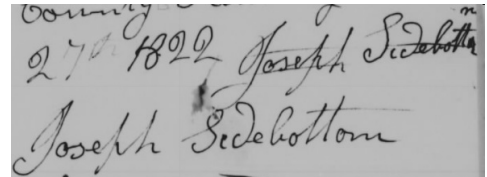 County
27th 1822 Joseph Sidebottom
Joseph Sidebottom